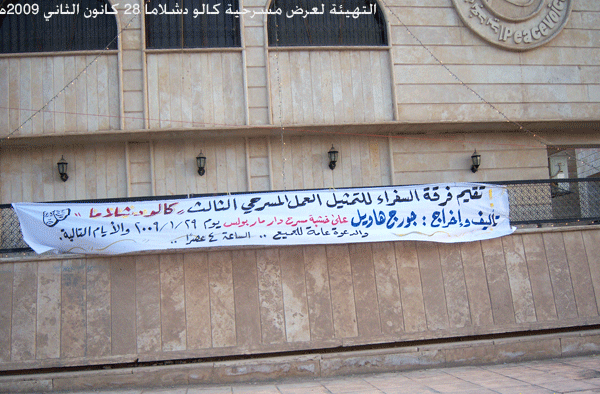 التهيئة لعرض مسرحية كالو دشلاما 28 كانون الثاني 2009م
Peace
تقيم فرقة السفراء للتمثيل العمل المسرحي الثالث „ كالو دشلاما „
تأليف وإخراج : جورج هاويل على خشبة مسرح دار مار بولس يوم ٢٠٠٩/١/٢٩ والأيام التالية.
والدعوة عامة للجميع .. الساعة ٤ عصراً ..